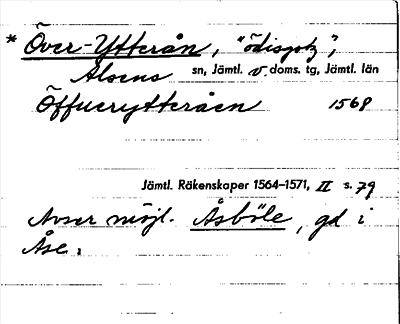 * Över-Ytterån, "ödisgotz",
Alsens sn, Jämtl. v. doms. tg, Jämtl. län
Öffuerytteråen 1568
Jämtl. Räkenskaper 1564–1571, II s. 79
Avser möjl. Åsböle, gd i
Åse.